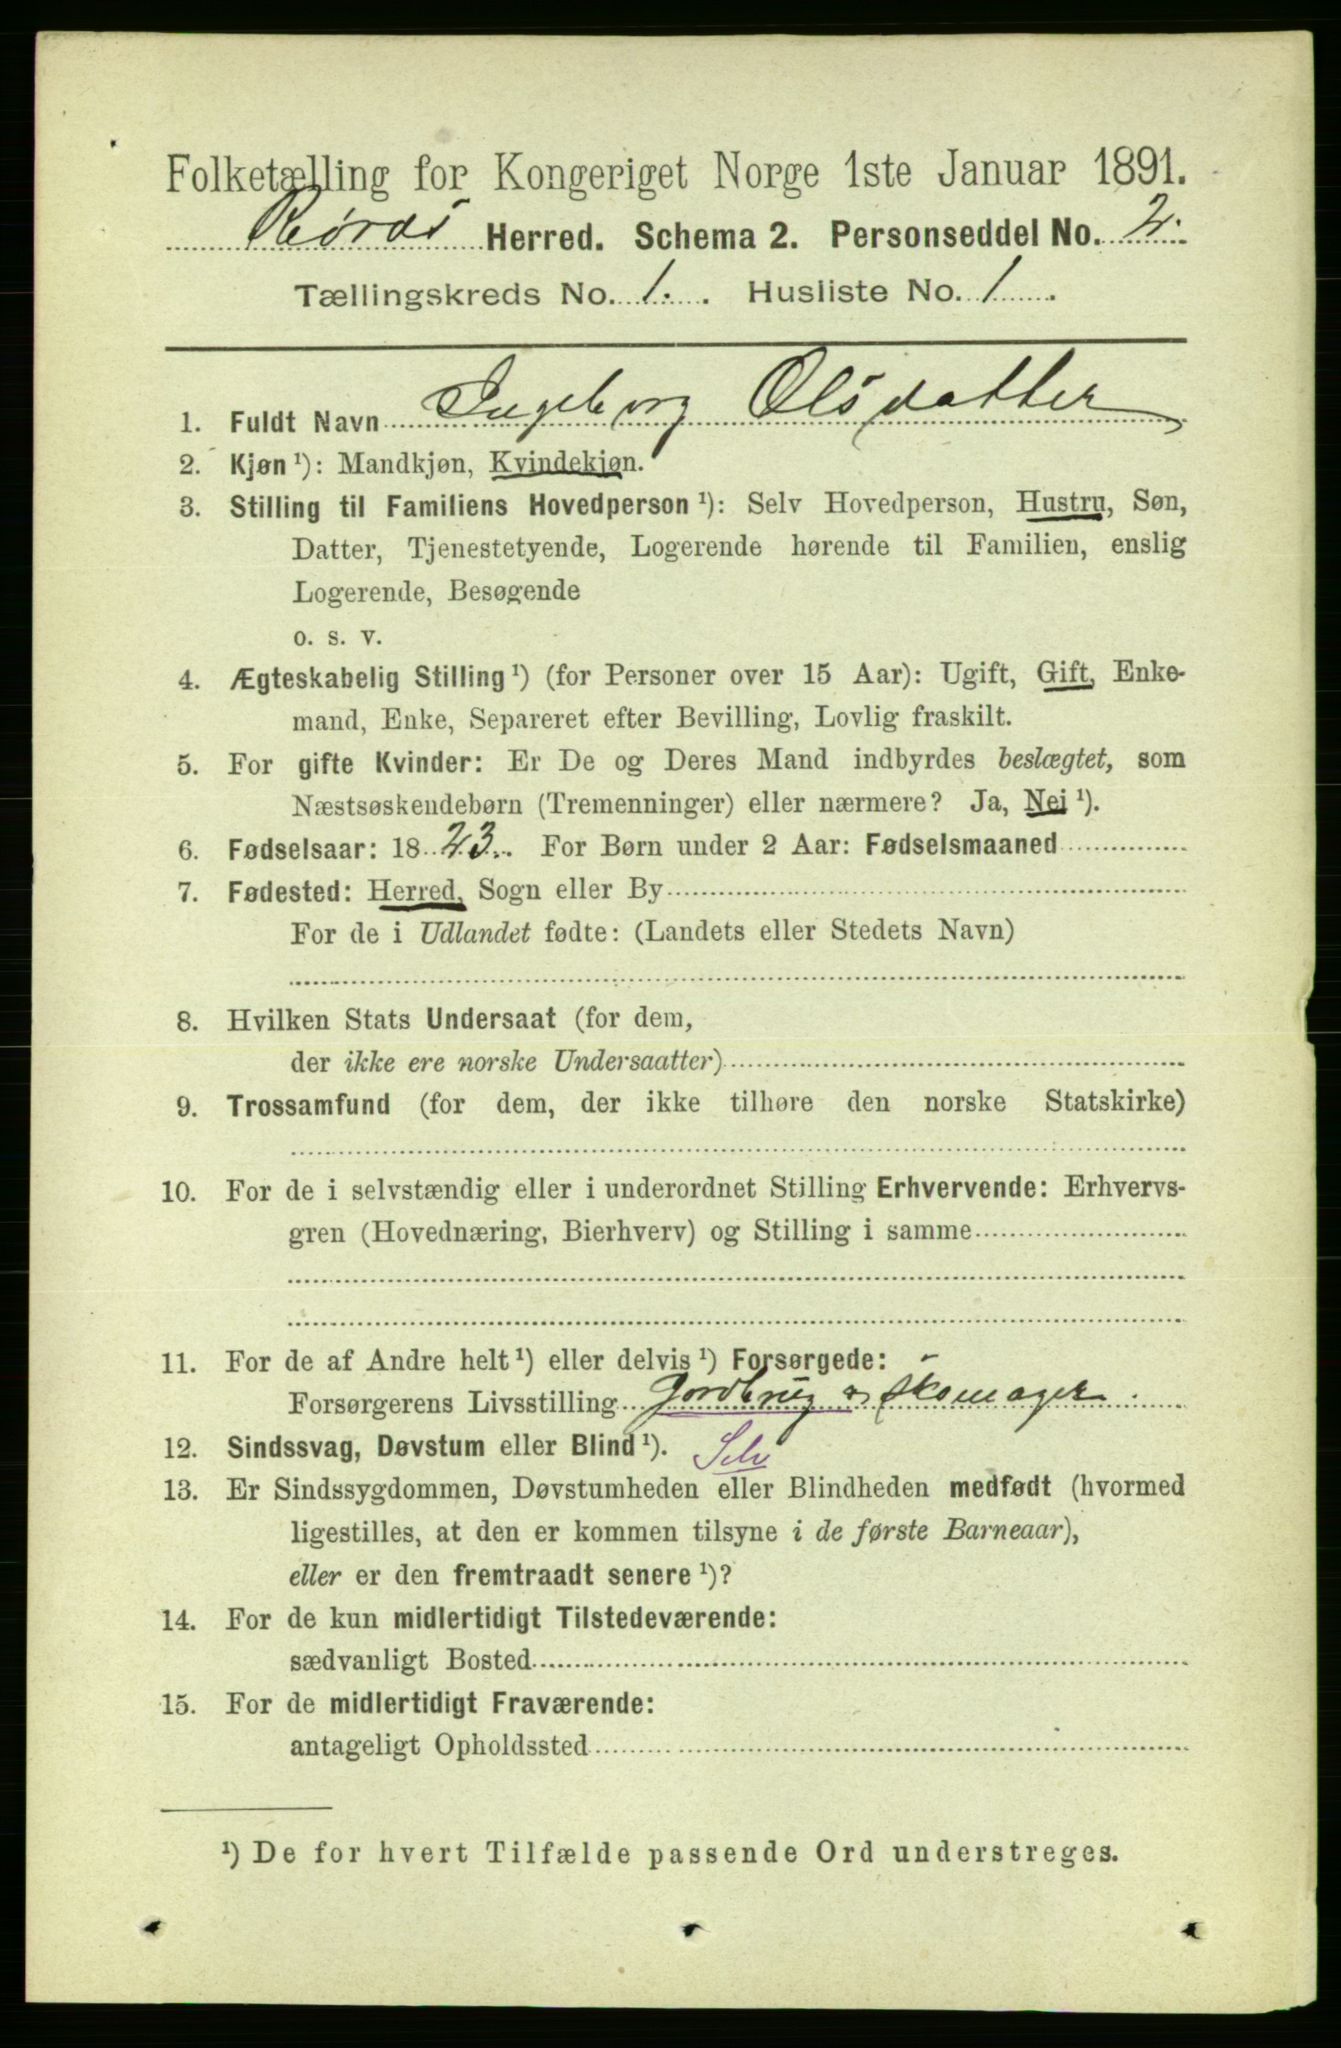 Folketælling for Kongeriget Norge 1ste Januar 1891.
Røros Herred. Schema 2. Personseddel No. 2.
Tællingskreds No. 1. Husliste No. 1
1. Fuldt Navn Ingeborg Olsdatter
2. Kjøn ¹): Mandkjøn, Kvindekjøn.
3. Stilling til Familiens Hovedperson ¹): Selv Hovedperson, Hustru, Søn,
Datter, Tjenestetyende, Logerende hørende til Familien, enslig
Logerende, Besøgende
o. s. v.
4. Ægteskabelig Stilling ¹) (for Personer over 15 Aar): Ugift, Gift, Enke-
mand, Enke, Separeret efter Bevilling, Lovlig fraskilt.
5. For gifte Kvinder: Er De og Deres Mand indbyrdes beslægtet, som
Næstsøskendebørn (Tremenninger) eller nærmere? Ja, Nei ¹).
6. Fødselsaar: 1823. For Børn under 2 Aar: Fødselsmaaned
7. Fødested: Herred, Sogn eller By
For de i Udlandet fødte: (Landets eller Stedets Navn)
8. Hvilken Stats Undersaat (for dem,
der ikke ere norske Undersaatter)
9. Trossamfund (for dem, der ikke tilhøre den norske Statskirke)
10. For de i selvstændig eller i underordnet Stilling Erhvervende: Erhvervs-
gren (Hovednæring, Bierhverv) og Stilling i samme
11. For de af Andre helt ¹) eller delvis ¹) Forsørgede:
Forsørgerens Livsstilling Jordbrug og skomager.
12. Sindssvag, Døvstum eller Blind ¹). Selv
13. Er Sindssygdommen, Døvstumheden eller Blindheden medfødt (hvormed
ligestilles, at den er kommen tilsyne i de første Barneaar),
eller er den fremtraadt senere ¹)?
14. For de kun midlertidigt Tilstedeværende:
sædvanligt Bosted
15. For de midlertidigt Fraværende:
antageligt Opholdssted
¹) De for hvert Tilfælde passende Ord understreges.